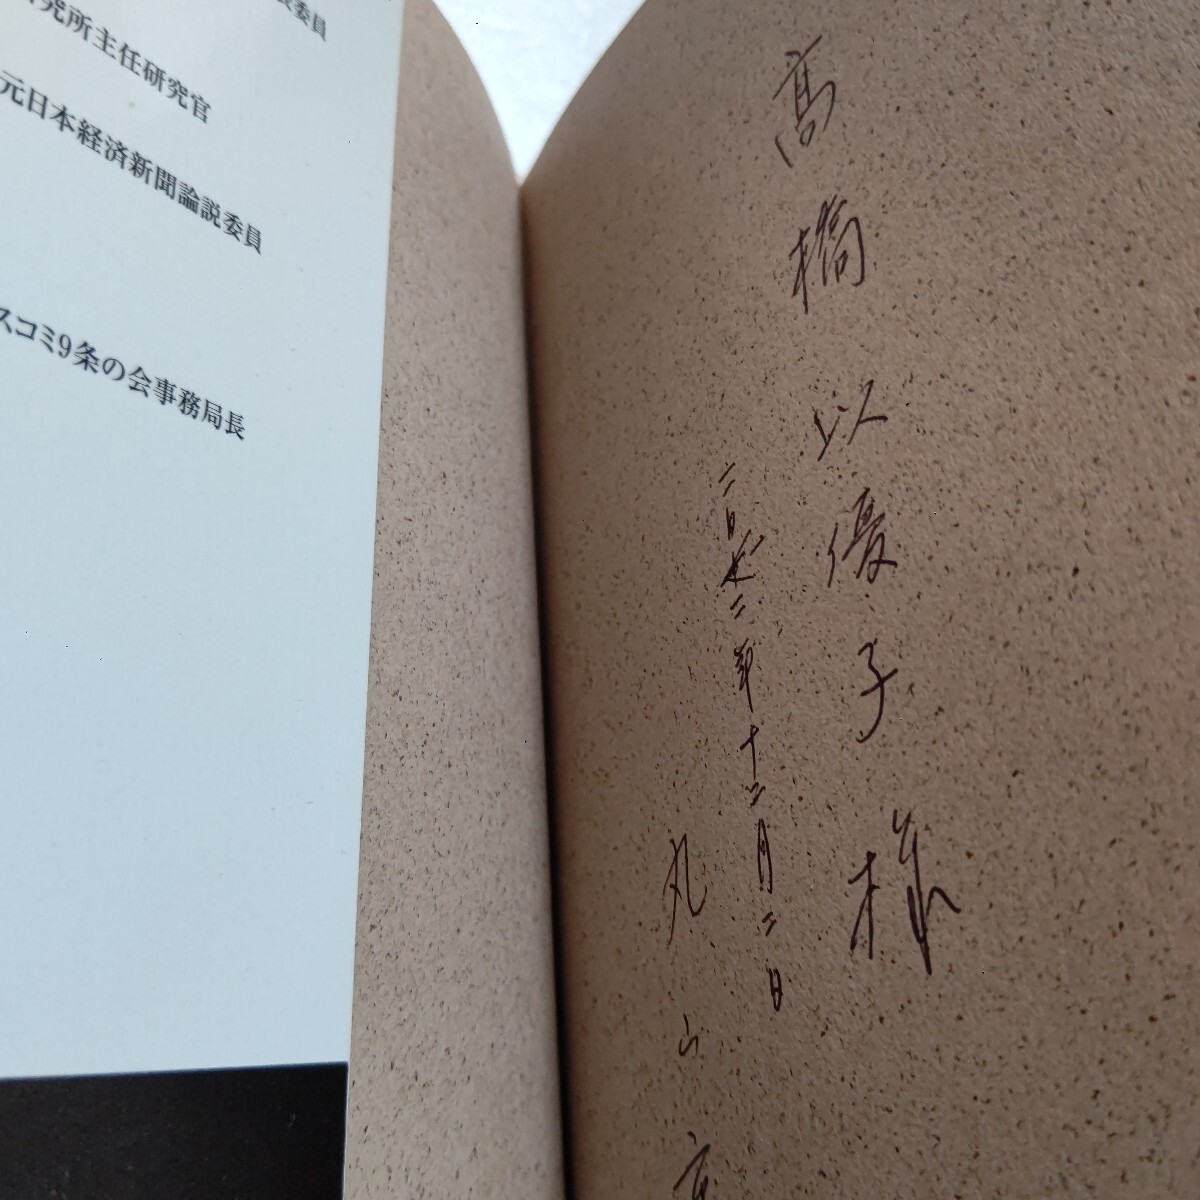 委員
究所主任研究官
元日本経済新聞論説委員
スコミ9条の会事務局長
髙橋以優子様
年十二月二日
丸山